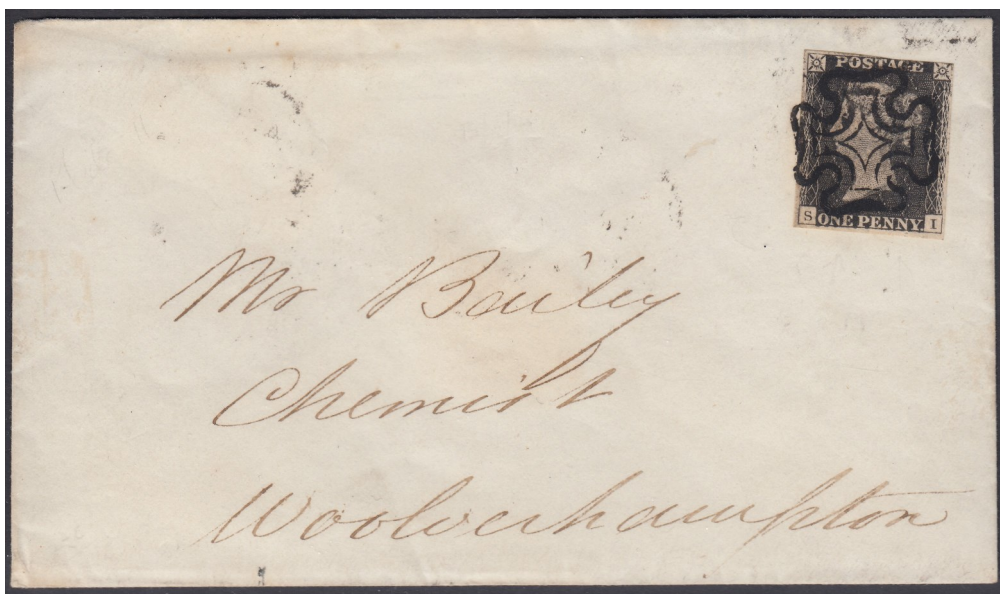 POSTAGE
S ONE PENNY. I
Mr Bailey
Chemist
Woolverhampton